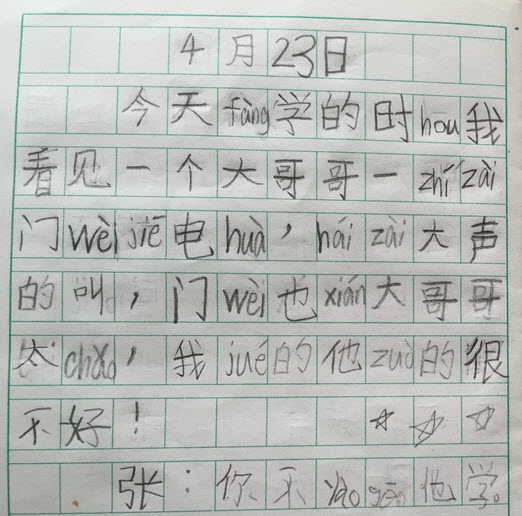 4月23日
今天fàng学的时hou我
看见一个大哥哥一zhí zài
门wèi jiē电huà，hái zài大声
的叫，门wèi也xián大哥哥
太chǎo，我jué的他zuò的很
不好！☆☆☆
张：你不yào gēn他学。